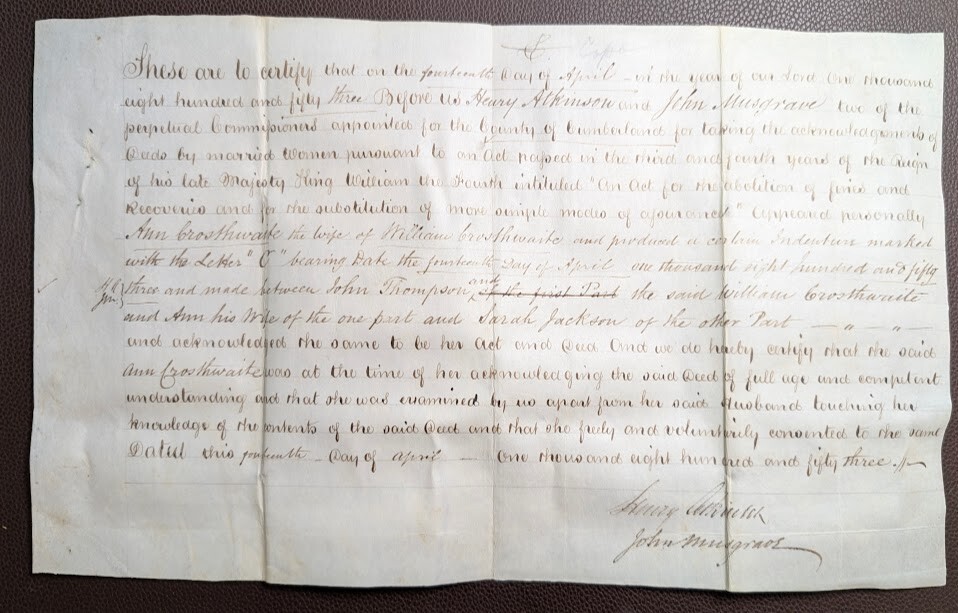 C. Copy
These are to certify that on the fourteenth Day of April in the year of our Lord One thousand
eight hundred and fifty three Before us Henry Atkinson and John Musgrave two of the
perpetual Commissioners appointed for the County of Cumberland for taking the acknowledgments of
Deeds by married Women pursuant to an Act passed in the third and fourth years of the Reign
of his late Majesty King William the Fourth intituled "An Act for the abolition of fines and
Recoveries and for the substitution of more simple modes of assurance" Appeared personally
Ann Crosthwaite the wife of William Crosthwaite and produced a certain Indenture marked
with the Letter "C" bearing Date the fourteenth Day of April one thousand eight hundred and fifty
three and made between John Thompson and of the first Part the said William Crosthwaite
and Ann his Wife of the one part and Sarah Jackson of the other Part — " — " —
and acknowledged the same to be her Act and Deed And we do hereby certify that the said
Ann Crosthwaite was at the time of her acknowledging the said Deed of full age and competent
understanding and that she was examined by us apart from her said Husband touching her
knowledge of the contents of the said Deed and that she freely and voluntarily consented to the same
Dated this fourteenth Day of April One thousand eight hundred and fifty three
Henry Atkinson
John Musgrave